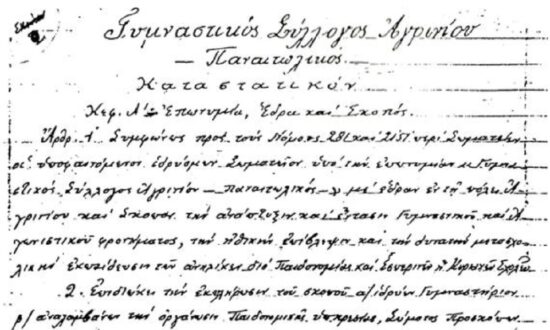 Γυμναστικός Σύλλογος Αγρινίου
– Παναιτωλικός –
Καταστατικόν
Κεφ. Α' – Επωνυμία, Έδρα και Σκοπός.
Αρθρ. 1 Συμφώνως προς τους Νόμους 281 και 2151 περί Σωματείων
οι υποφαινόμενοι ιδρύομεν Σωματείον υπό την επωνυμίαν « Γυμνα
στικός Σύλλογος Αγρινίου – Παναιτωλικός – » με έδραν εν τη πόλει Α
γρινίου και Σκοπόν την ανάπτυξιν και έντασιν Γυμναστικού και Α
γωνιστικού φρονήματος, την ηθικήν και την δυνατήν μετασχο
λικήν εκπαίδευσιν των ανηλίκων διά Παιδονομίας και Εσπερινών ή Κυριακών Σχολών
2. Επιδιώκει την εκπλήρωσιν του σκοπού α) ιδρύων Γυμναστήριον
β) αναλαμβάνων την οργάνωσιν Παιδονομικής υπηρεσίας, Σώματος Προσκόπων